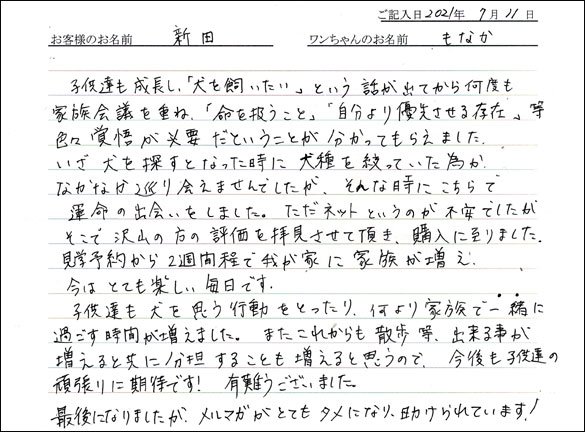 ご記入日 2021年 9月 21日
お客様のお名前 新田 ワンちゃんのお名前 もなか
子供達も成長し、「犬を飼いたい」という話が出てから何度も
家族会議を重ね、「命を扱うこと」「自分より優先させる存在」等
色々覚悟が必要だということが分かってもらえました。
いざ犬を探すとなった時に犬種を絞っていた為か
なかなか巡り会えませんでしたが、そんな時にこちらで
運命の出会いをしました。ただネットというのが不安でしたが
そこで沢山の方の評価を拝見させて頂き、購入に至りました。
見学予約から2週間程で我が家に家族が増え、
今はとても楽しい毎日です。
子供達も犬を思う行動をとったり、何より家族で一緒に
過ごす時間が増えました。またこれからも散歩等、出来る事が
増えると共に分担することも増えると思うので、今後も子供達の
頑張りに期待です! 有難うございました。
最後になりましたが、メルマガがとてもタメになり、助けられています!